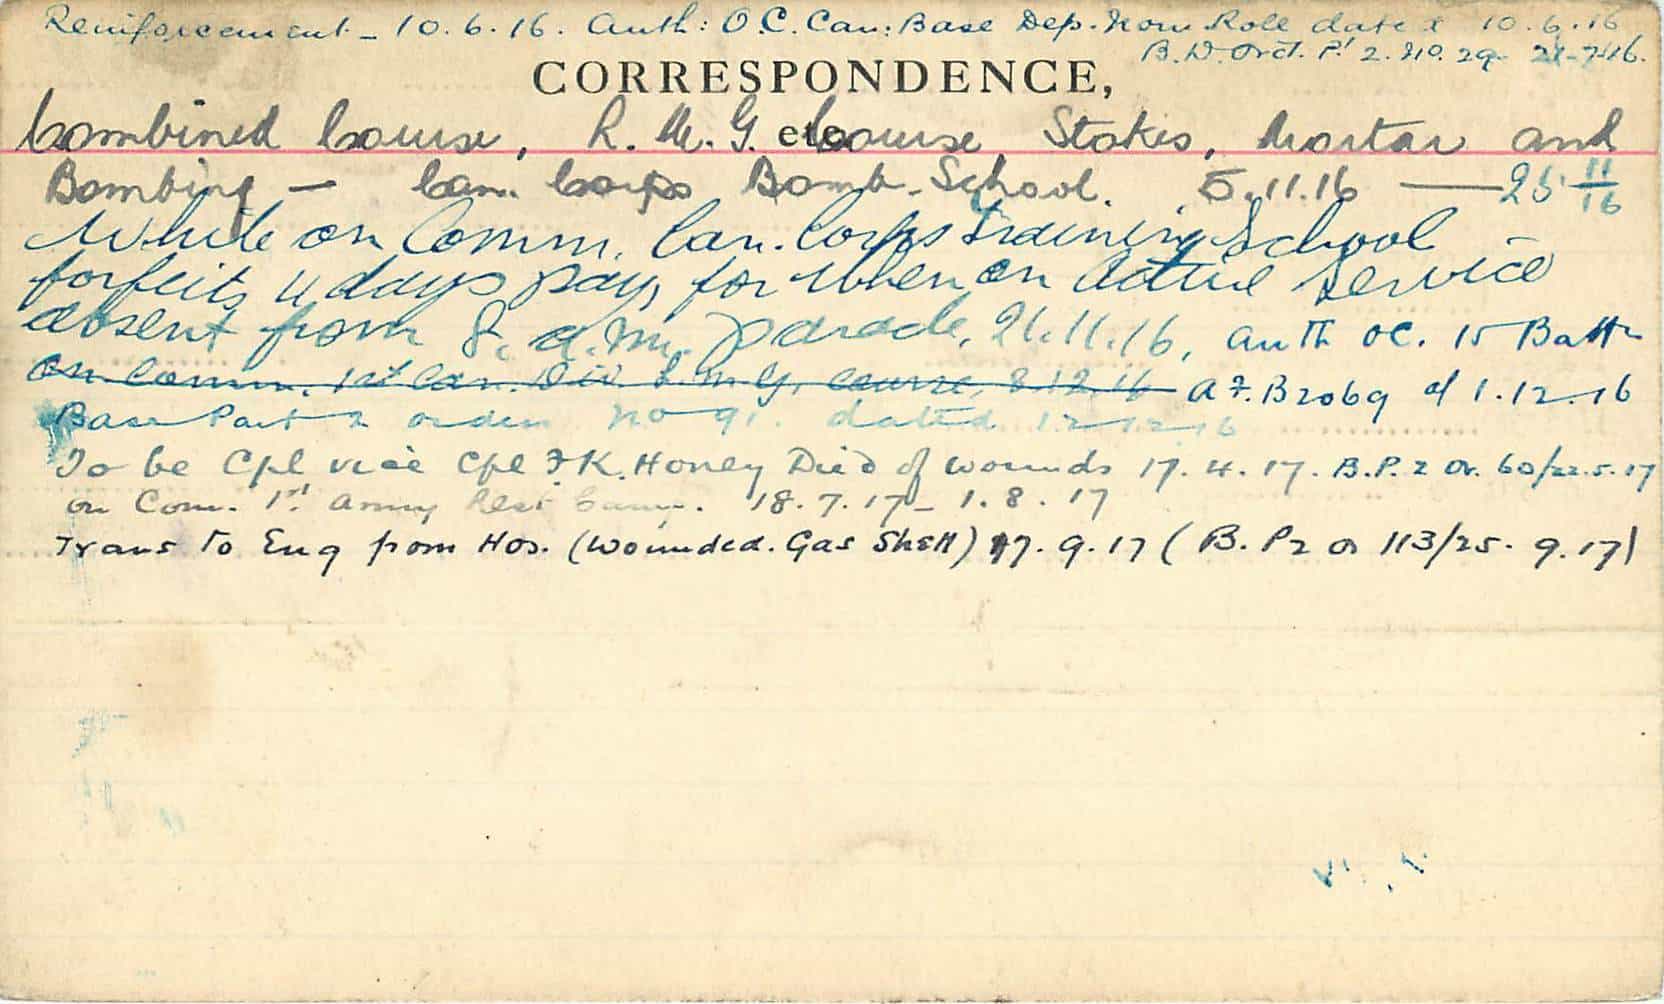 Reinforcement - 10.6.16. Auth: O.C. Can: Base Dep. Nom Roll dated 10.6.16
B.D. Ord. Pt 2. No. 29 21-7-16.
CORRESPONDENCE, etc
Combined Course, L. M. G. Course, Stokes, Mortar and
Bombing — Can. Corps Bomb. School. 5.11.16 — 25 11/16
While on Comm. Can. Corps Training School
forfeits 4 days pay, for when on Active Service
absent from 8. a.m. parade, 21.11.16, Auth OC. 15 Battn
On Comm. 1st Can. Div L.M.G. Course, 8.12.16 A.F. B2069 d/ 1.12.16
Base Part 2 orders No 91. dated 12-12-16
To be Cpl vice Cpl F.K. Honey Died of wounds 17.4.17. B.P.2 Or. 60/22.5.17
on Com. 1st Army Rest Camp. 18.7.17 - 1.8.17
Trans to Eng from Hos. (Wounded. Gas Shell) 17.9.17 (B.P2 O 113/25.9.17)